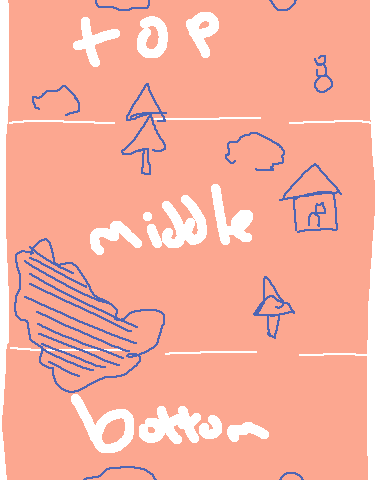 top
middle
bottom